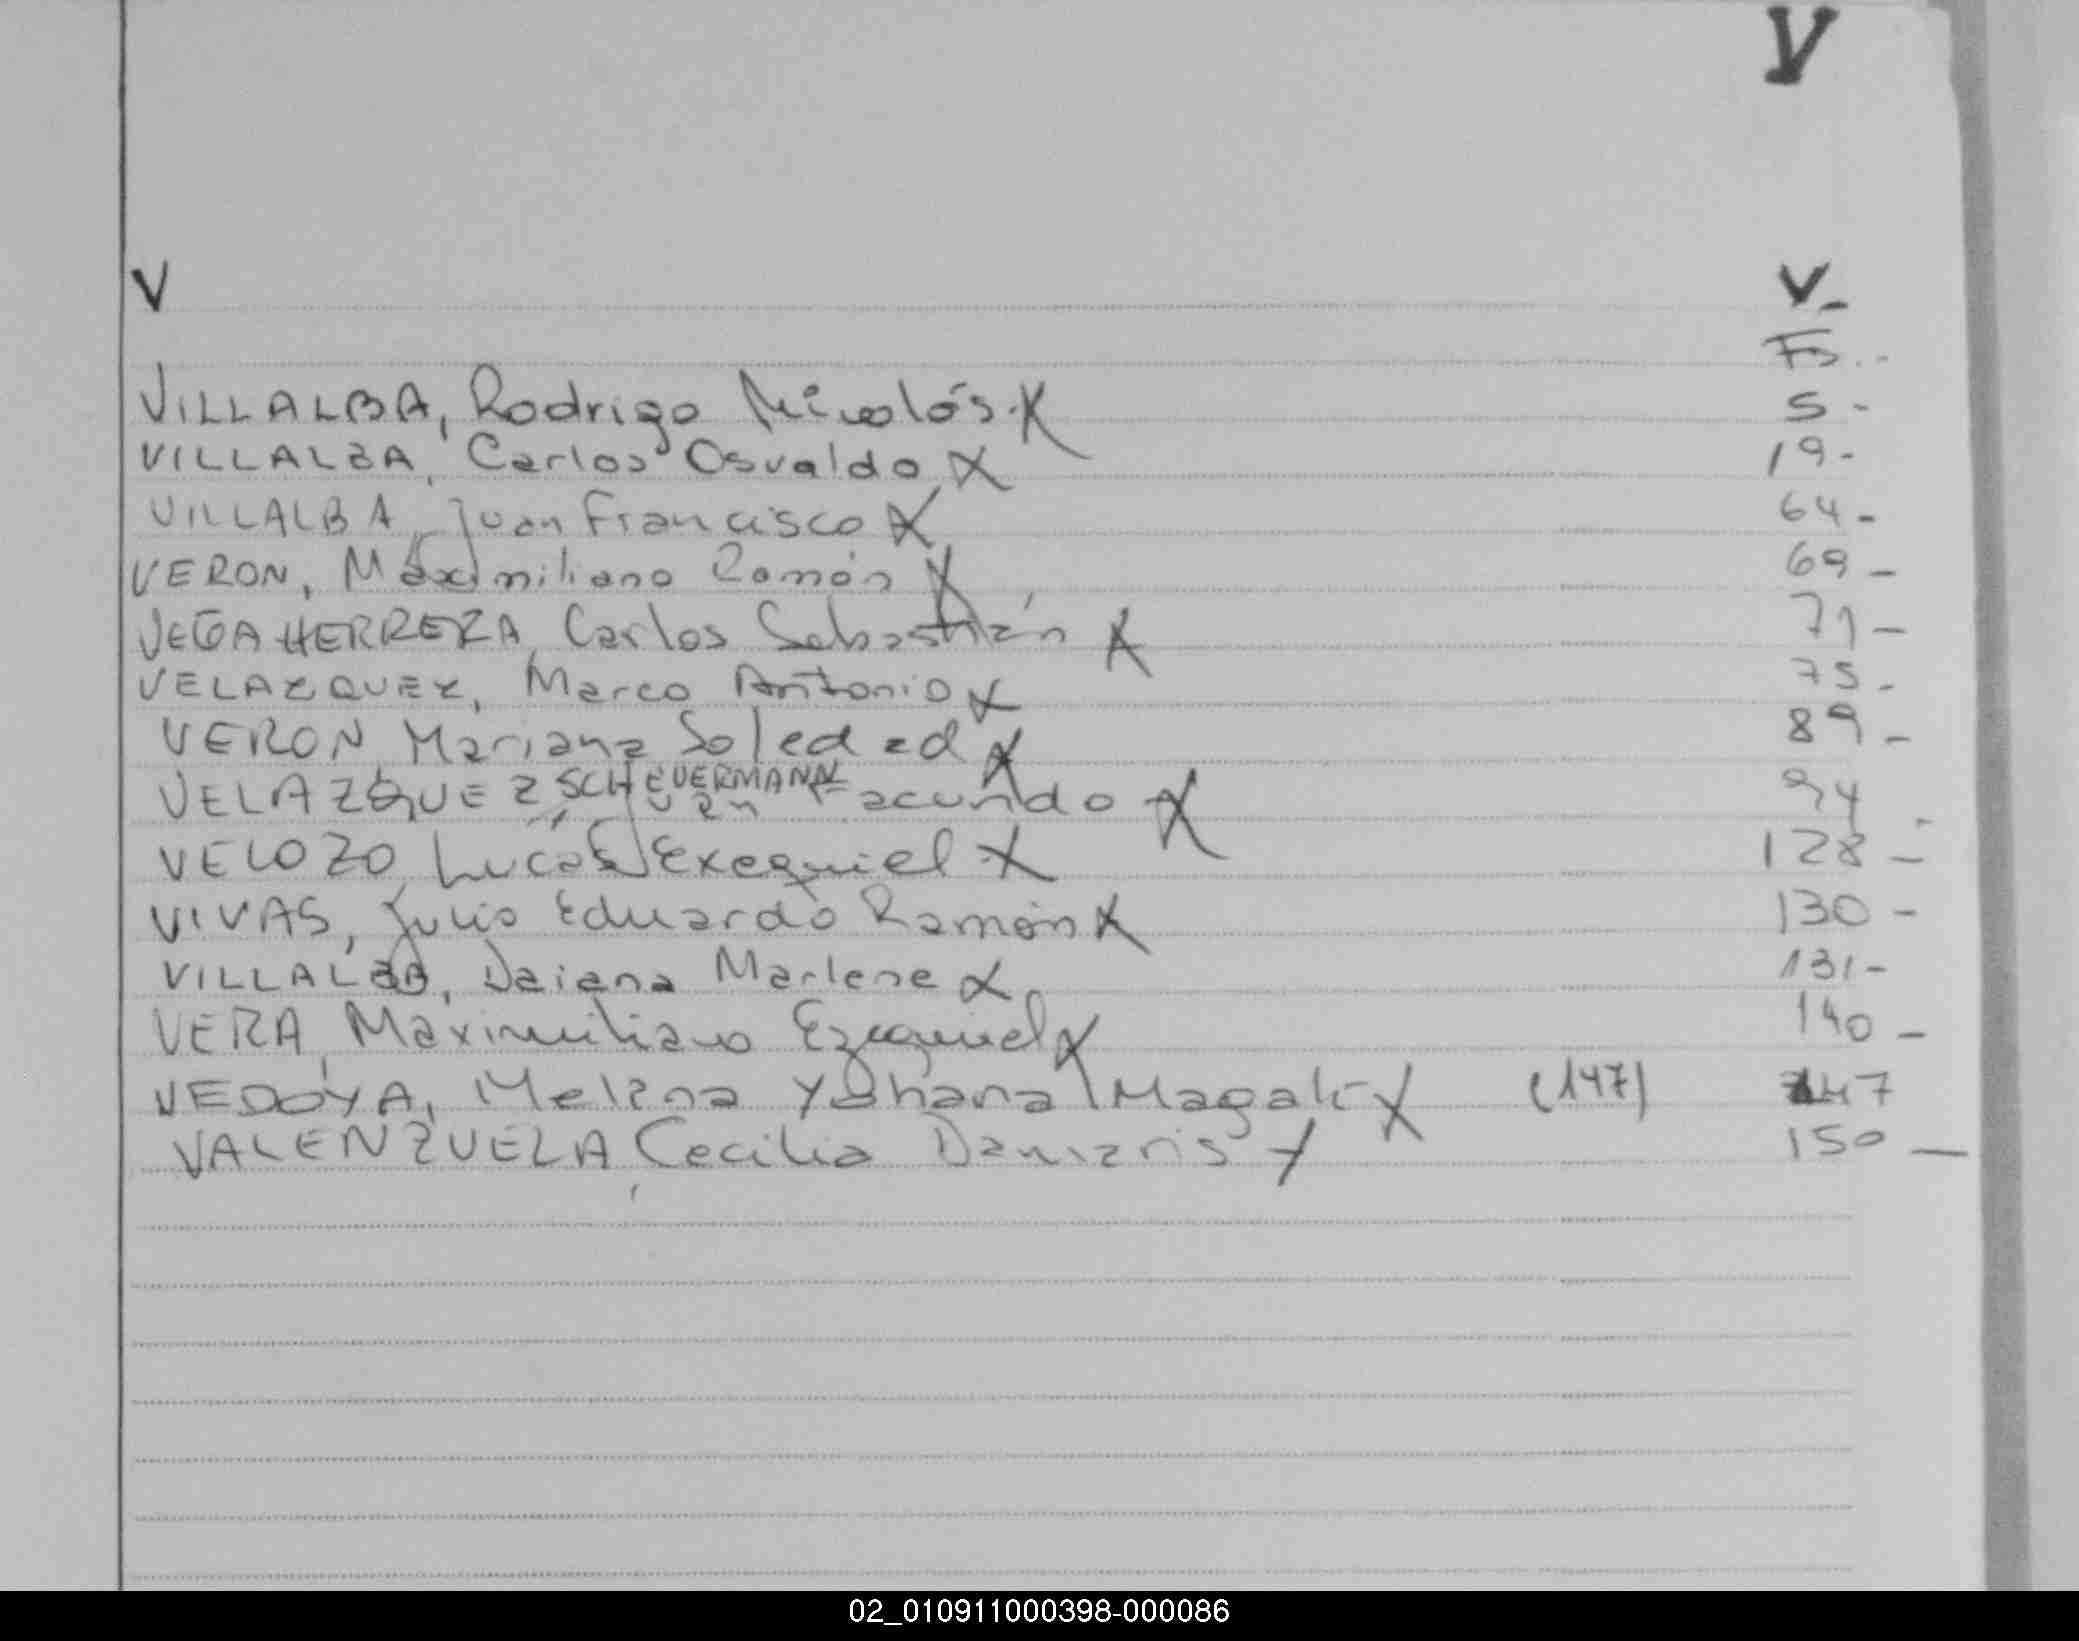 V
V V-
Fs.-
VILLALBA, Rodrigo Nicolás.X 5-
VILLALBA, Carlos Osvaldo X 19-
VILLALBA, Juan Francisco X 64-
VERON, Maximiliano Ramón X 69-
VEGA HERRERA, Carlos Sebastián X 71-
VELAZQUEZ, Marco Antonio X 75-
VERON Mariana Soledad X 89-
VELAZQUEZ SCHEUERMANN Juan Facundo X 94-
VELOZO, Lucas Exequiel X 128-
VIVAS, Julio Eduardo Ramón X 130-
VILLALBA, Daiana Marlene X 131-
VERA, Maximiliano Ezequiel X 140-
VEDOYA, Melina Yohana Magalí X (147) 147
VALENZUELA, Cecilia Damaris X 150-
02_010911000398-000086